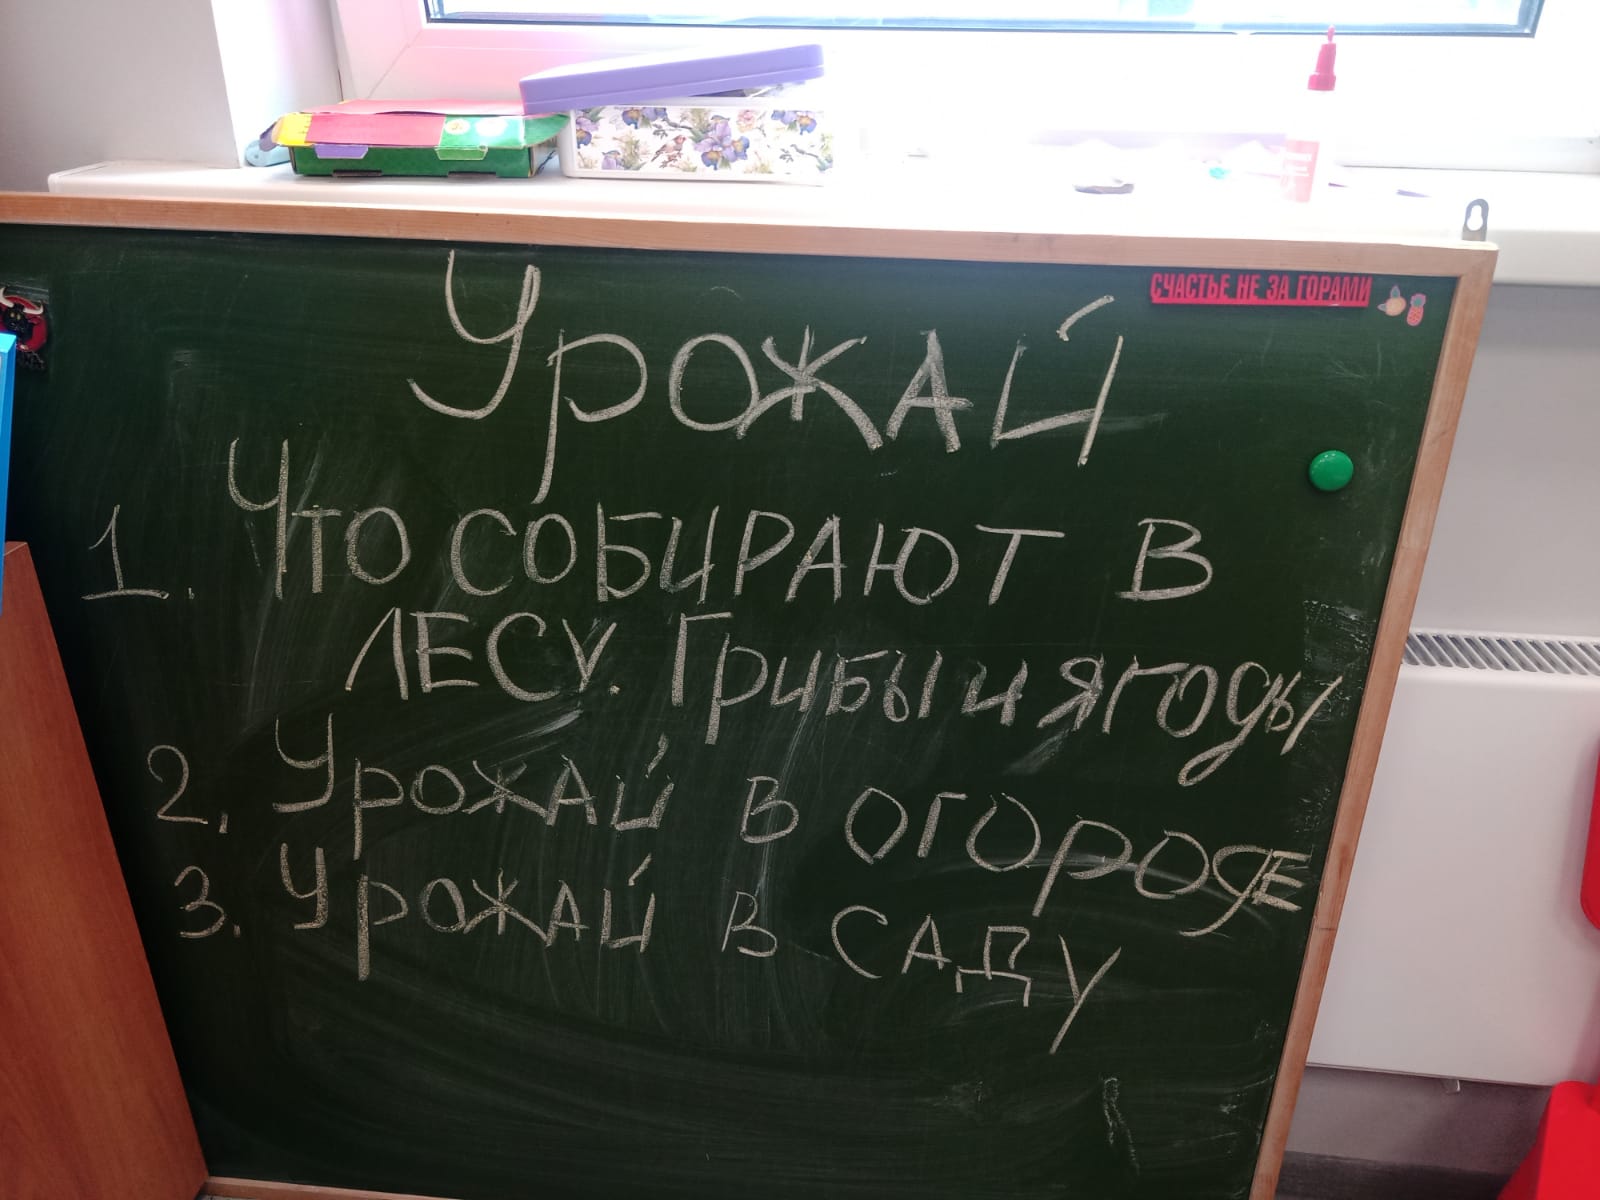 СЧАСТЬЕ НЕ ЗА ГОРАМИ
Урожай
1. Что собирают в
лесу. Грибы и ягоды
2. Урожай в огороде
3. Урожай в саду